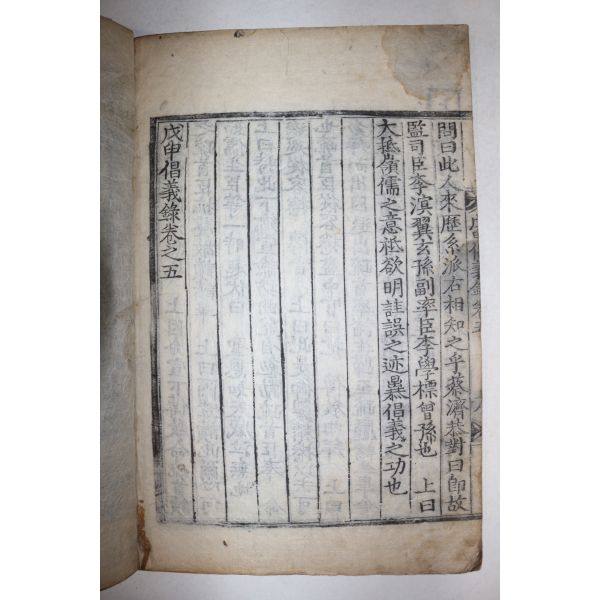 問曰此人來歷系派右相知之乎蔡濟恭對曰卽故
監司臣李溟翼玄孫副率臣李學標曾孫也 上曰
大抵嶺儒之意秪欲明詿誤之迹暴倡義之功也
戊申倡義錄卷之五